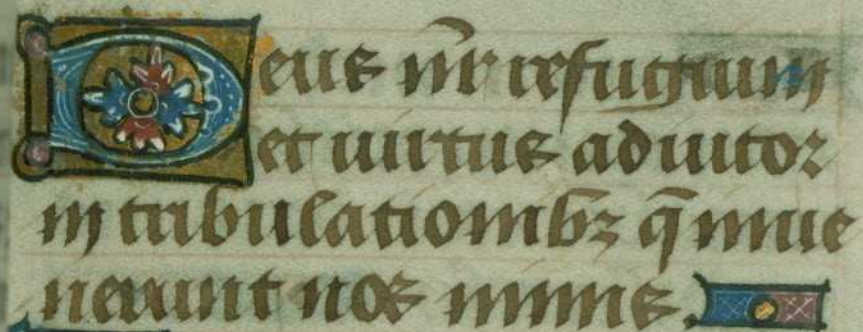 Deus nr̄ refugium
et uirtus adiutor
in tribulationibꝫ q̄ inue
nerunt nos nimis.